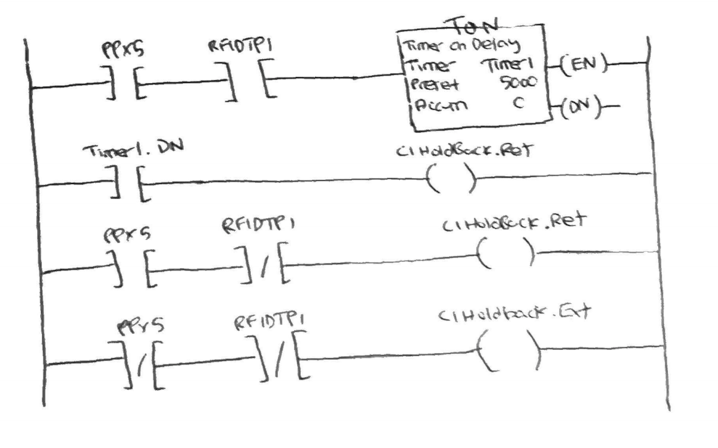 PPX5 RFIDTP1 TON
Timer on Delay
Timer Timer1 (EN)
Preset 5000
Accum 0 (DN)
Timer1.DN C1HoldBack.Ret
PPX5 RFIDTP1 C1HoldBack.Ret
PPX5 RFIDTP1 C1Holdback.Ext